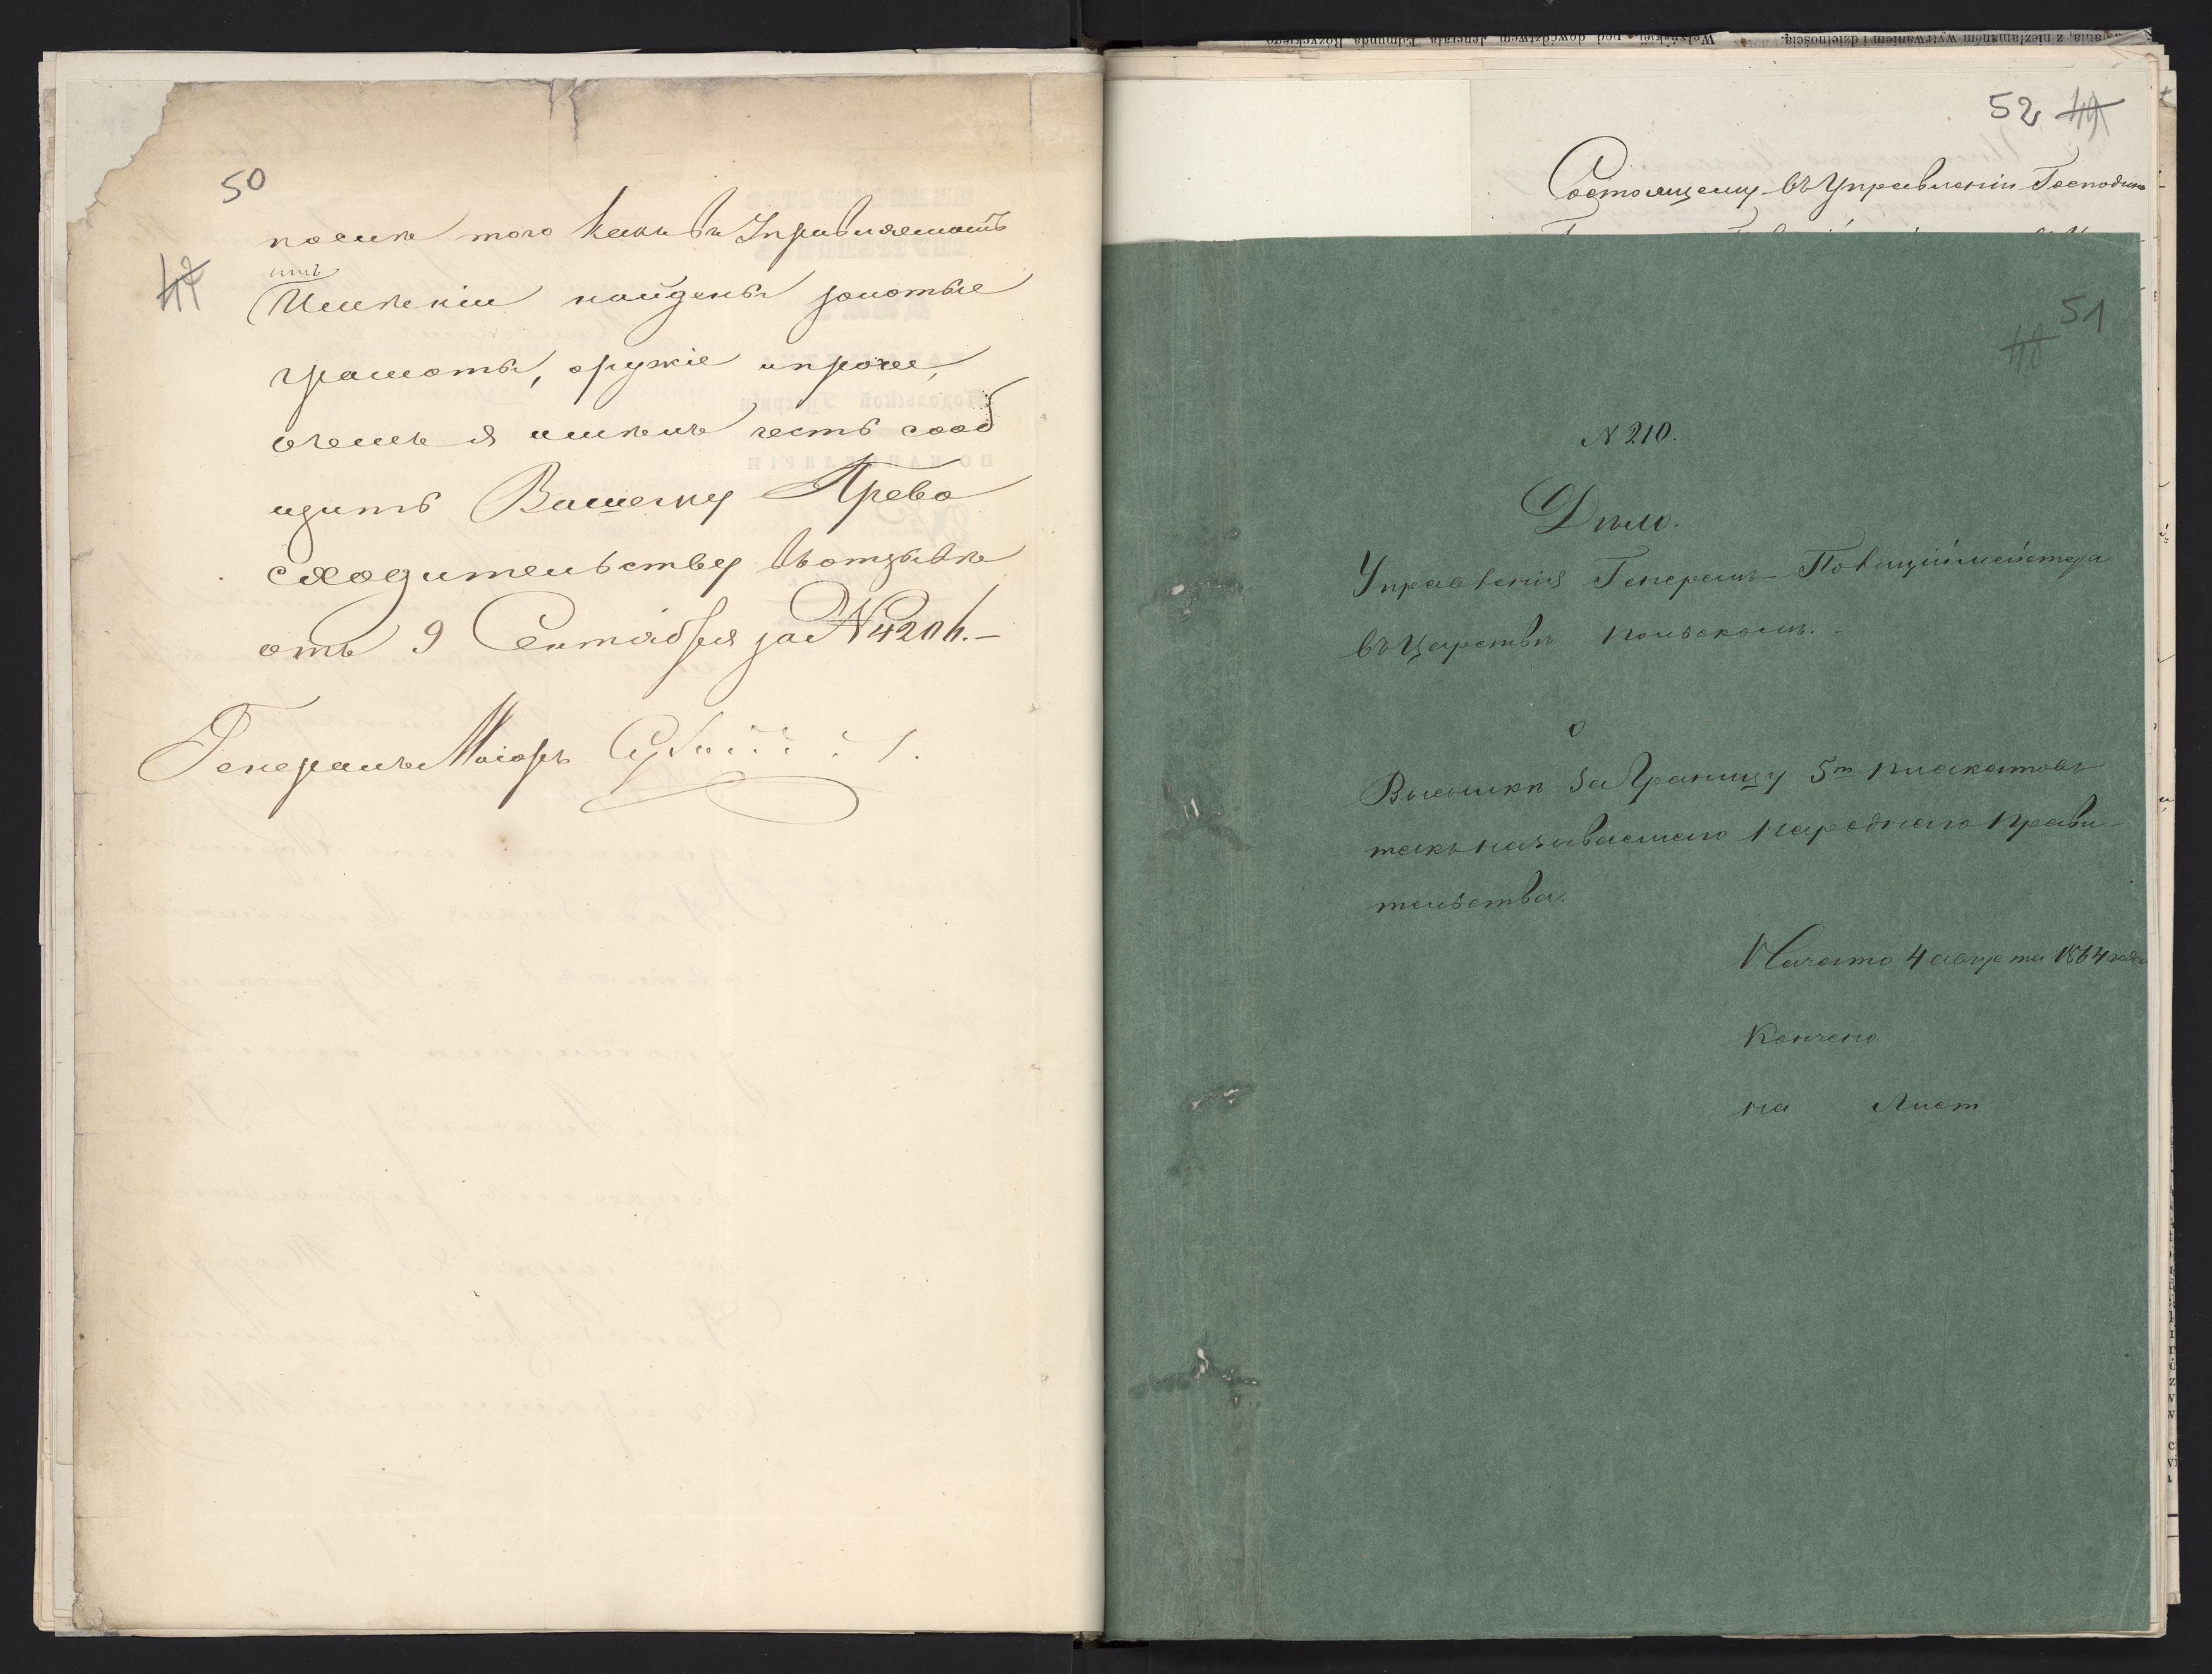 50
47
послѣ того какъ въ Управляемомъ
имъ
Имѣніи найдены золотые
грамоты, оружіе и прочее,
очемъ я имѣлъ честь сооб
щить Вашему Прево
сходительству въ отзывѣ
отъ 9 Сентября за № 4206.—
Генералъ Маіоръ
52 49
Состоящему въ Управленіи Господина
51
48
N 210.
Дѣло.
Управленія Генералъ-Полиціймейстера
въ Царствѣ Польскомъ.
о
Высылкѣ за Границу 5ти плакатовъ
такъ называемаго Народнаго Прави-
тельства.
Начато 4 августа 1864 года
Кончено
на Лист